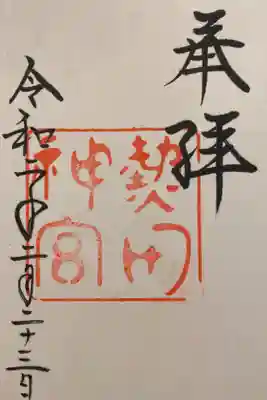 奉拝
熱田
神宮
令和年二月二十三日